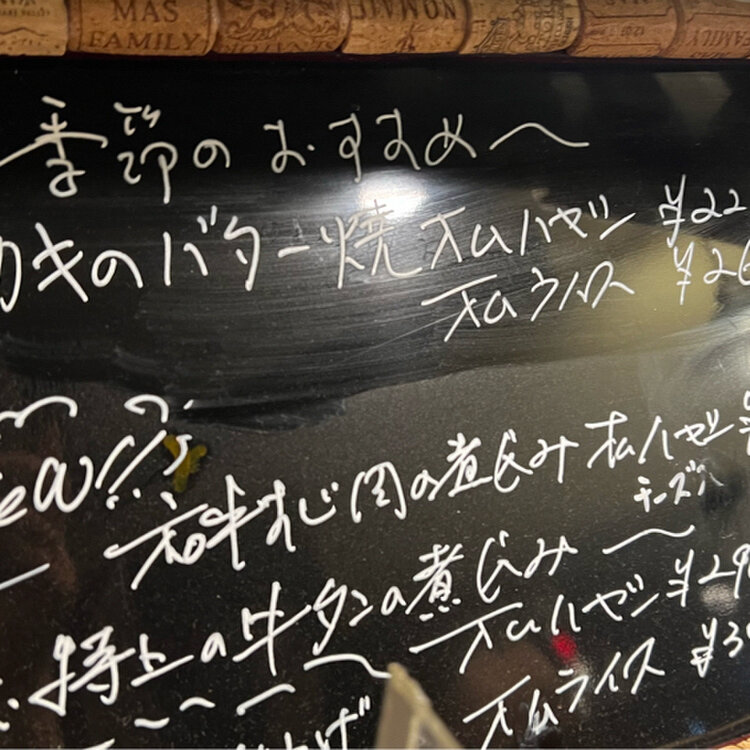 MAS
FAMILY
季節のおすすめ〜
カキのバター焼 オムハヤシ ¥22
オムライス ¥26
ew!!
和牛すじ肉の煮込み オムハヤシ
チーズ入
特上の牛タンの煮込み〜
オムハヤシ ¥29
オムライス ¥3